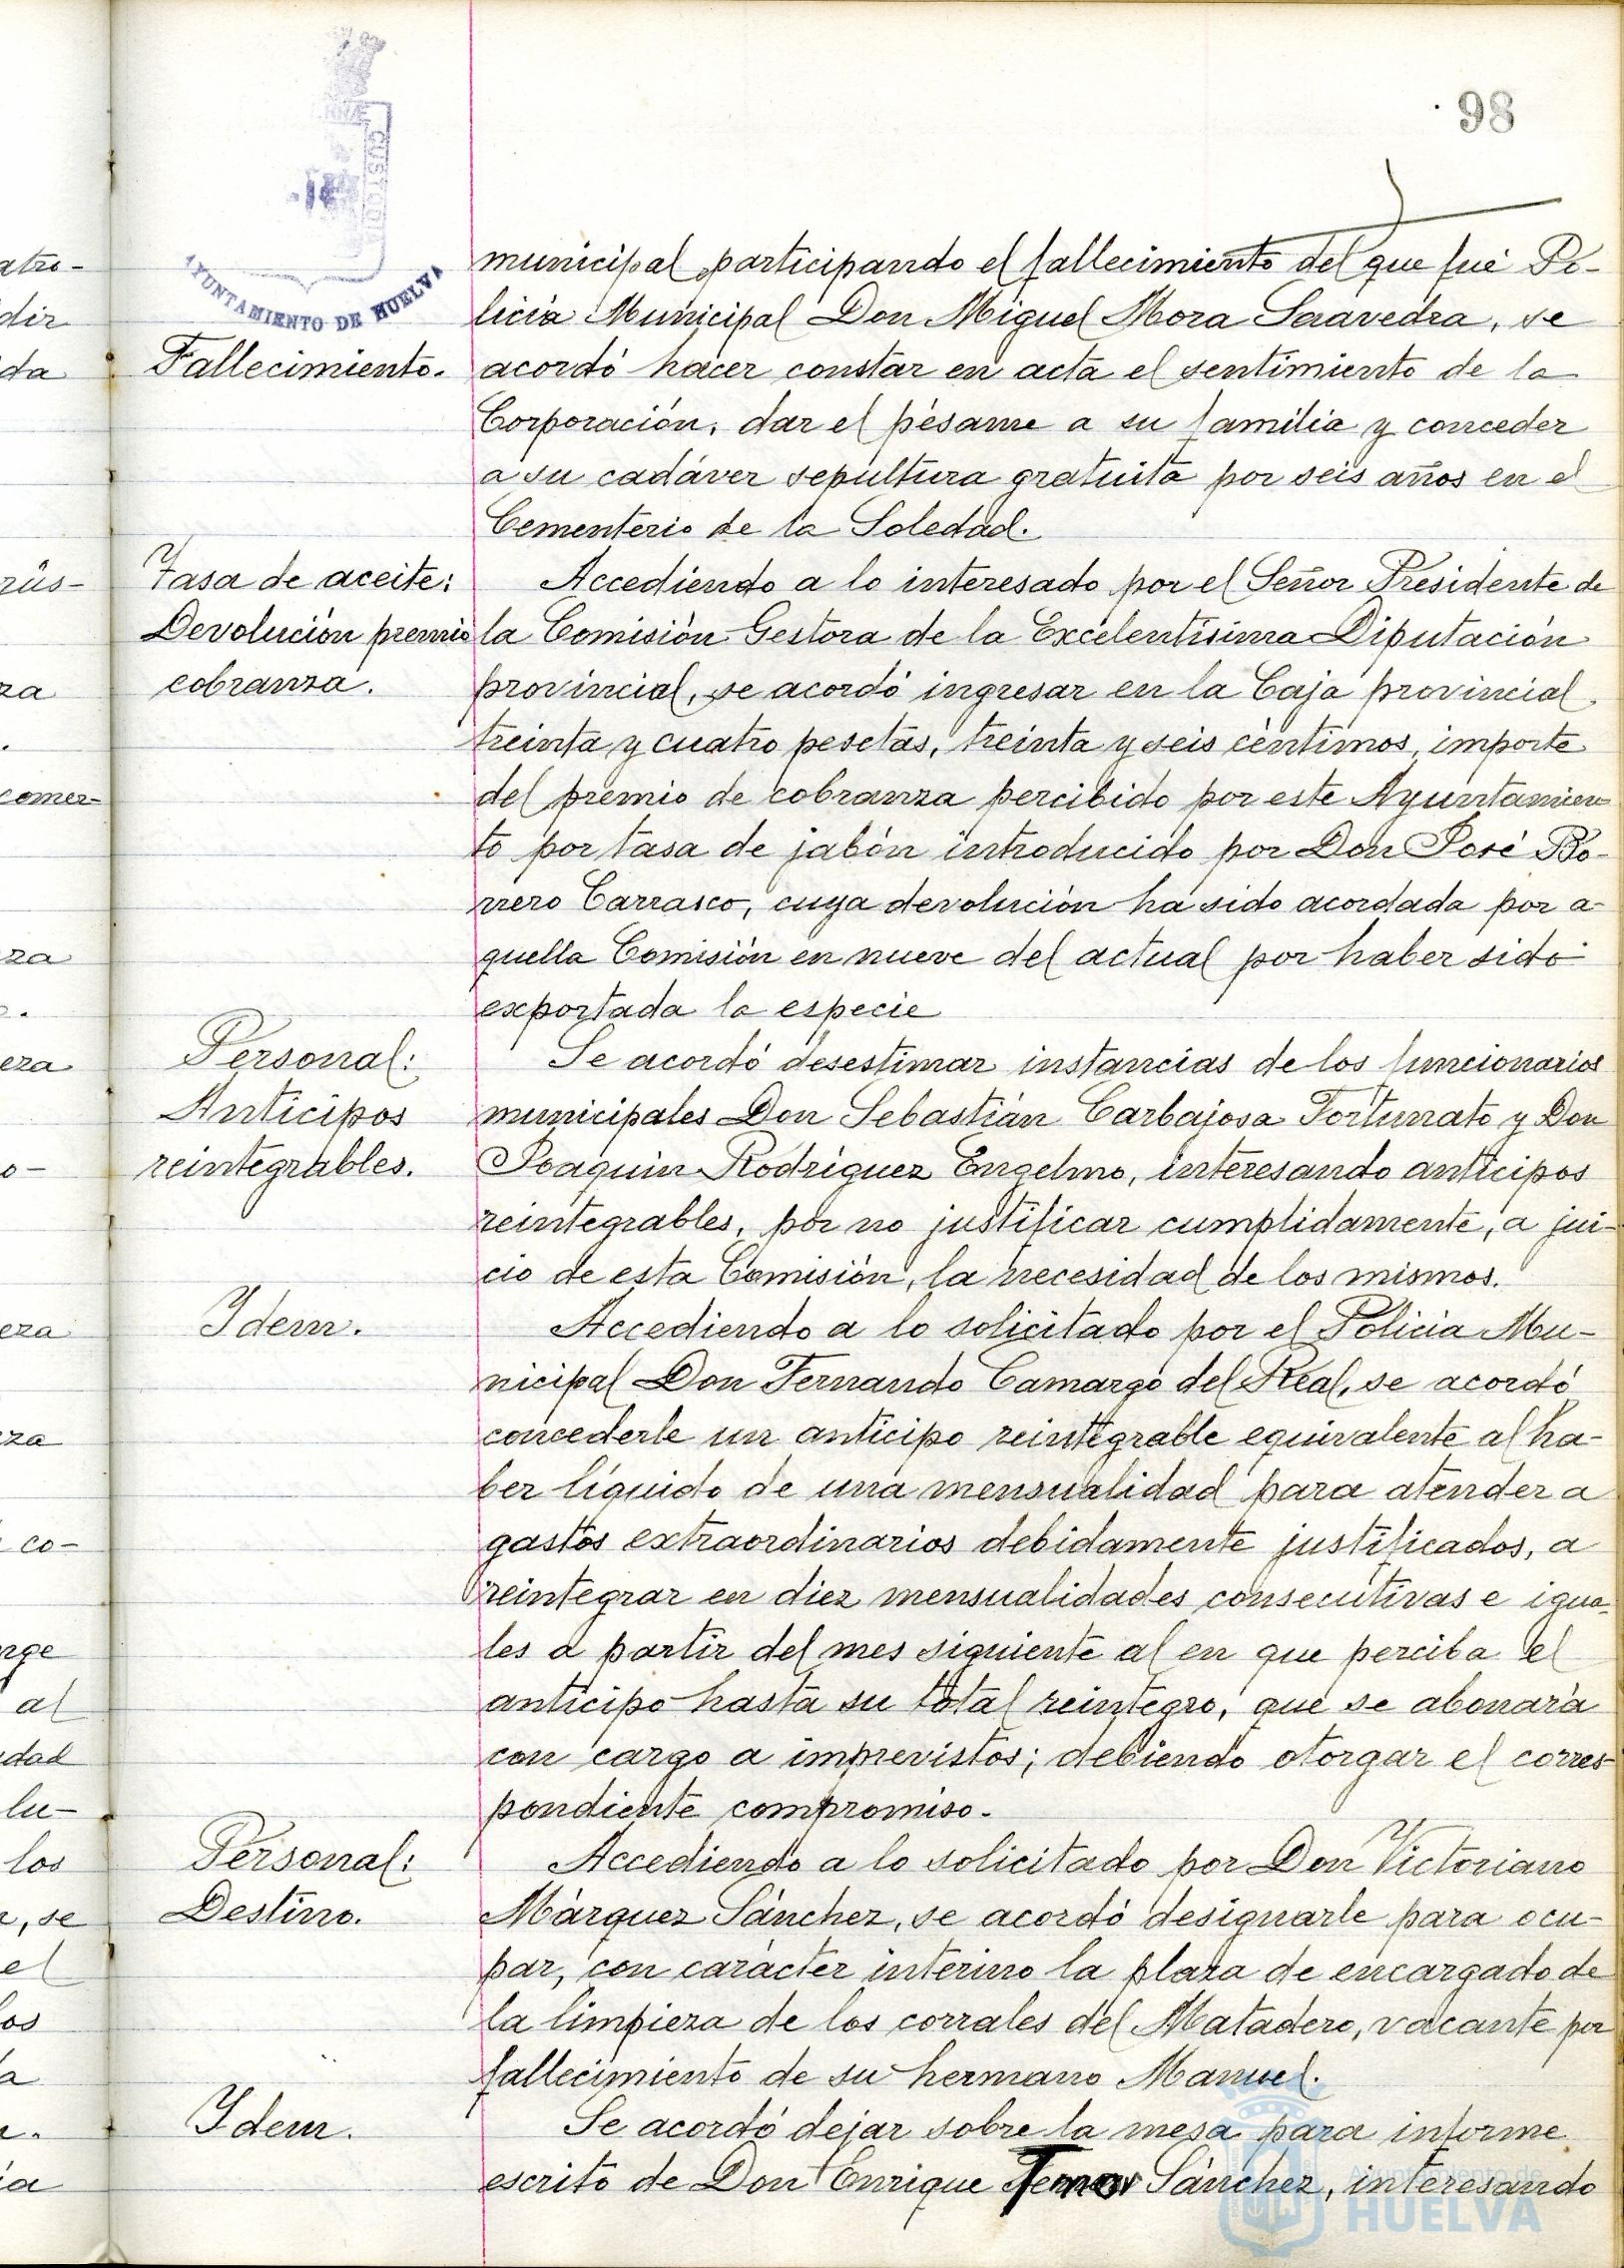 98
AYUNTAMIENTO DE HUELVA
municipal participando el fallecimiento del que fué Po-
licía Municipal Don Miguel Mora Saavedra, se
Fallecimiento.
acordó hacer constar en acta el sentimiento de la
Corporación, dar el pésame a su familia y conceder
a su cadáver sepultura gratuita por seis años en el
Cementerio de la Soledad.
Tasa de aceite:
Devolución premio
cobranza.
Accediendo a lo interesado por el Señor Presidente de
la Comisión Gestora de la Excelentísima Diputación
provincial, se acordó ingresar en la Caja provincial
treinta y cuatro pesetas, treinta y seis céntimos, importe
del premio de cobranza percibido por este Ayuntamien
to por tasa de jabón introducido por Don José Bo-
rrero Carrasco, cuya devolución ha sido acordada por a-
quella Comisión en nueve del actual por haber sido
exportada la especie
Personal:
Anticipos
reintegrables.
Se acordó desestimar instancias de los funcionarios
municipales Don Sebastián Carbajosa Fortunato y Don
Joaquín Rodríguez Engelmo, interesando anticipos
reintegrables, por no justificar cumplidamente, a jui-
cio de esta Comisión, la necesidad de los mismos.
Idem.
Accediendo a lo solicitado por el Policía Mu-
nicipal Don Fernando Camargo del Real, se acordó
concederle un anticipo reintegrable equivalente al ha-
ber líquido de una mensualidad para atender a
gastos extraordinarios debidamente justificados, a
reintegrar en diez mensualidades consecutivas e igua-
les a partir del mes siguiente al en que perciba el
anticipo hasta su total reintegro, que se abonará
con cargo a imprevistos; debiendo otorgar el corres-
pondiente compromiso.
Personal:
Destino.
Accediendo a lo solicitado por Don Victoriano
Márquez Sánchez, se acordó designarle para ocu-
par, con carácter interino la plaza de encargado de
la limpieza de los corrales del Matadero, vacante por
fallecimiento de su hermano Manuel.
Idem.
Se acordó dejar sobre la mesa para informe
escrito de Don Enrique Sánchez, interesando
Ayuntamiento de
HUELVA